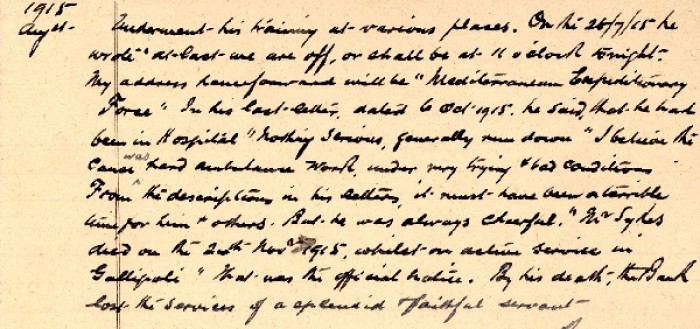 1915
Augst Underwent his training at various places. On the 28/7/15 he
wrote "at last we are off, or shall be at 11 o'clock tonight.
My address henceforward will be "Mediterranean Expeditionary
Force" In his last letter, dated 6 Oct 1915. he said, that he had
been in Hospital "Nothing Serious, generally run down "I believe the
cause was hard ambulance work, under very trying & bad conditions
From the descriptions in his letters, it must have been a terrible
time for him & others. But he was always cheerful. "Mr Sykes
died on the 24th Novr 1915, whilst on active service in
Gallipoli" That was the official notice. By his death, the Bank
lost the services of a splendid & faithful servant